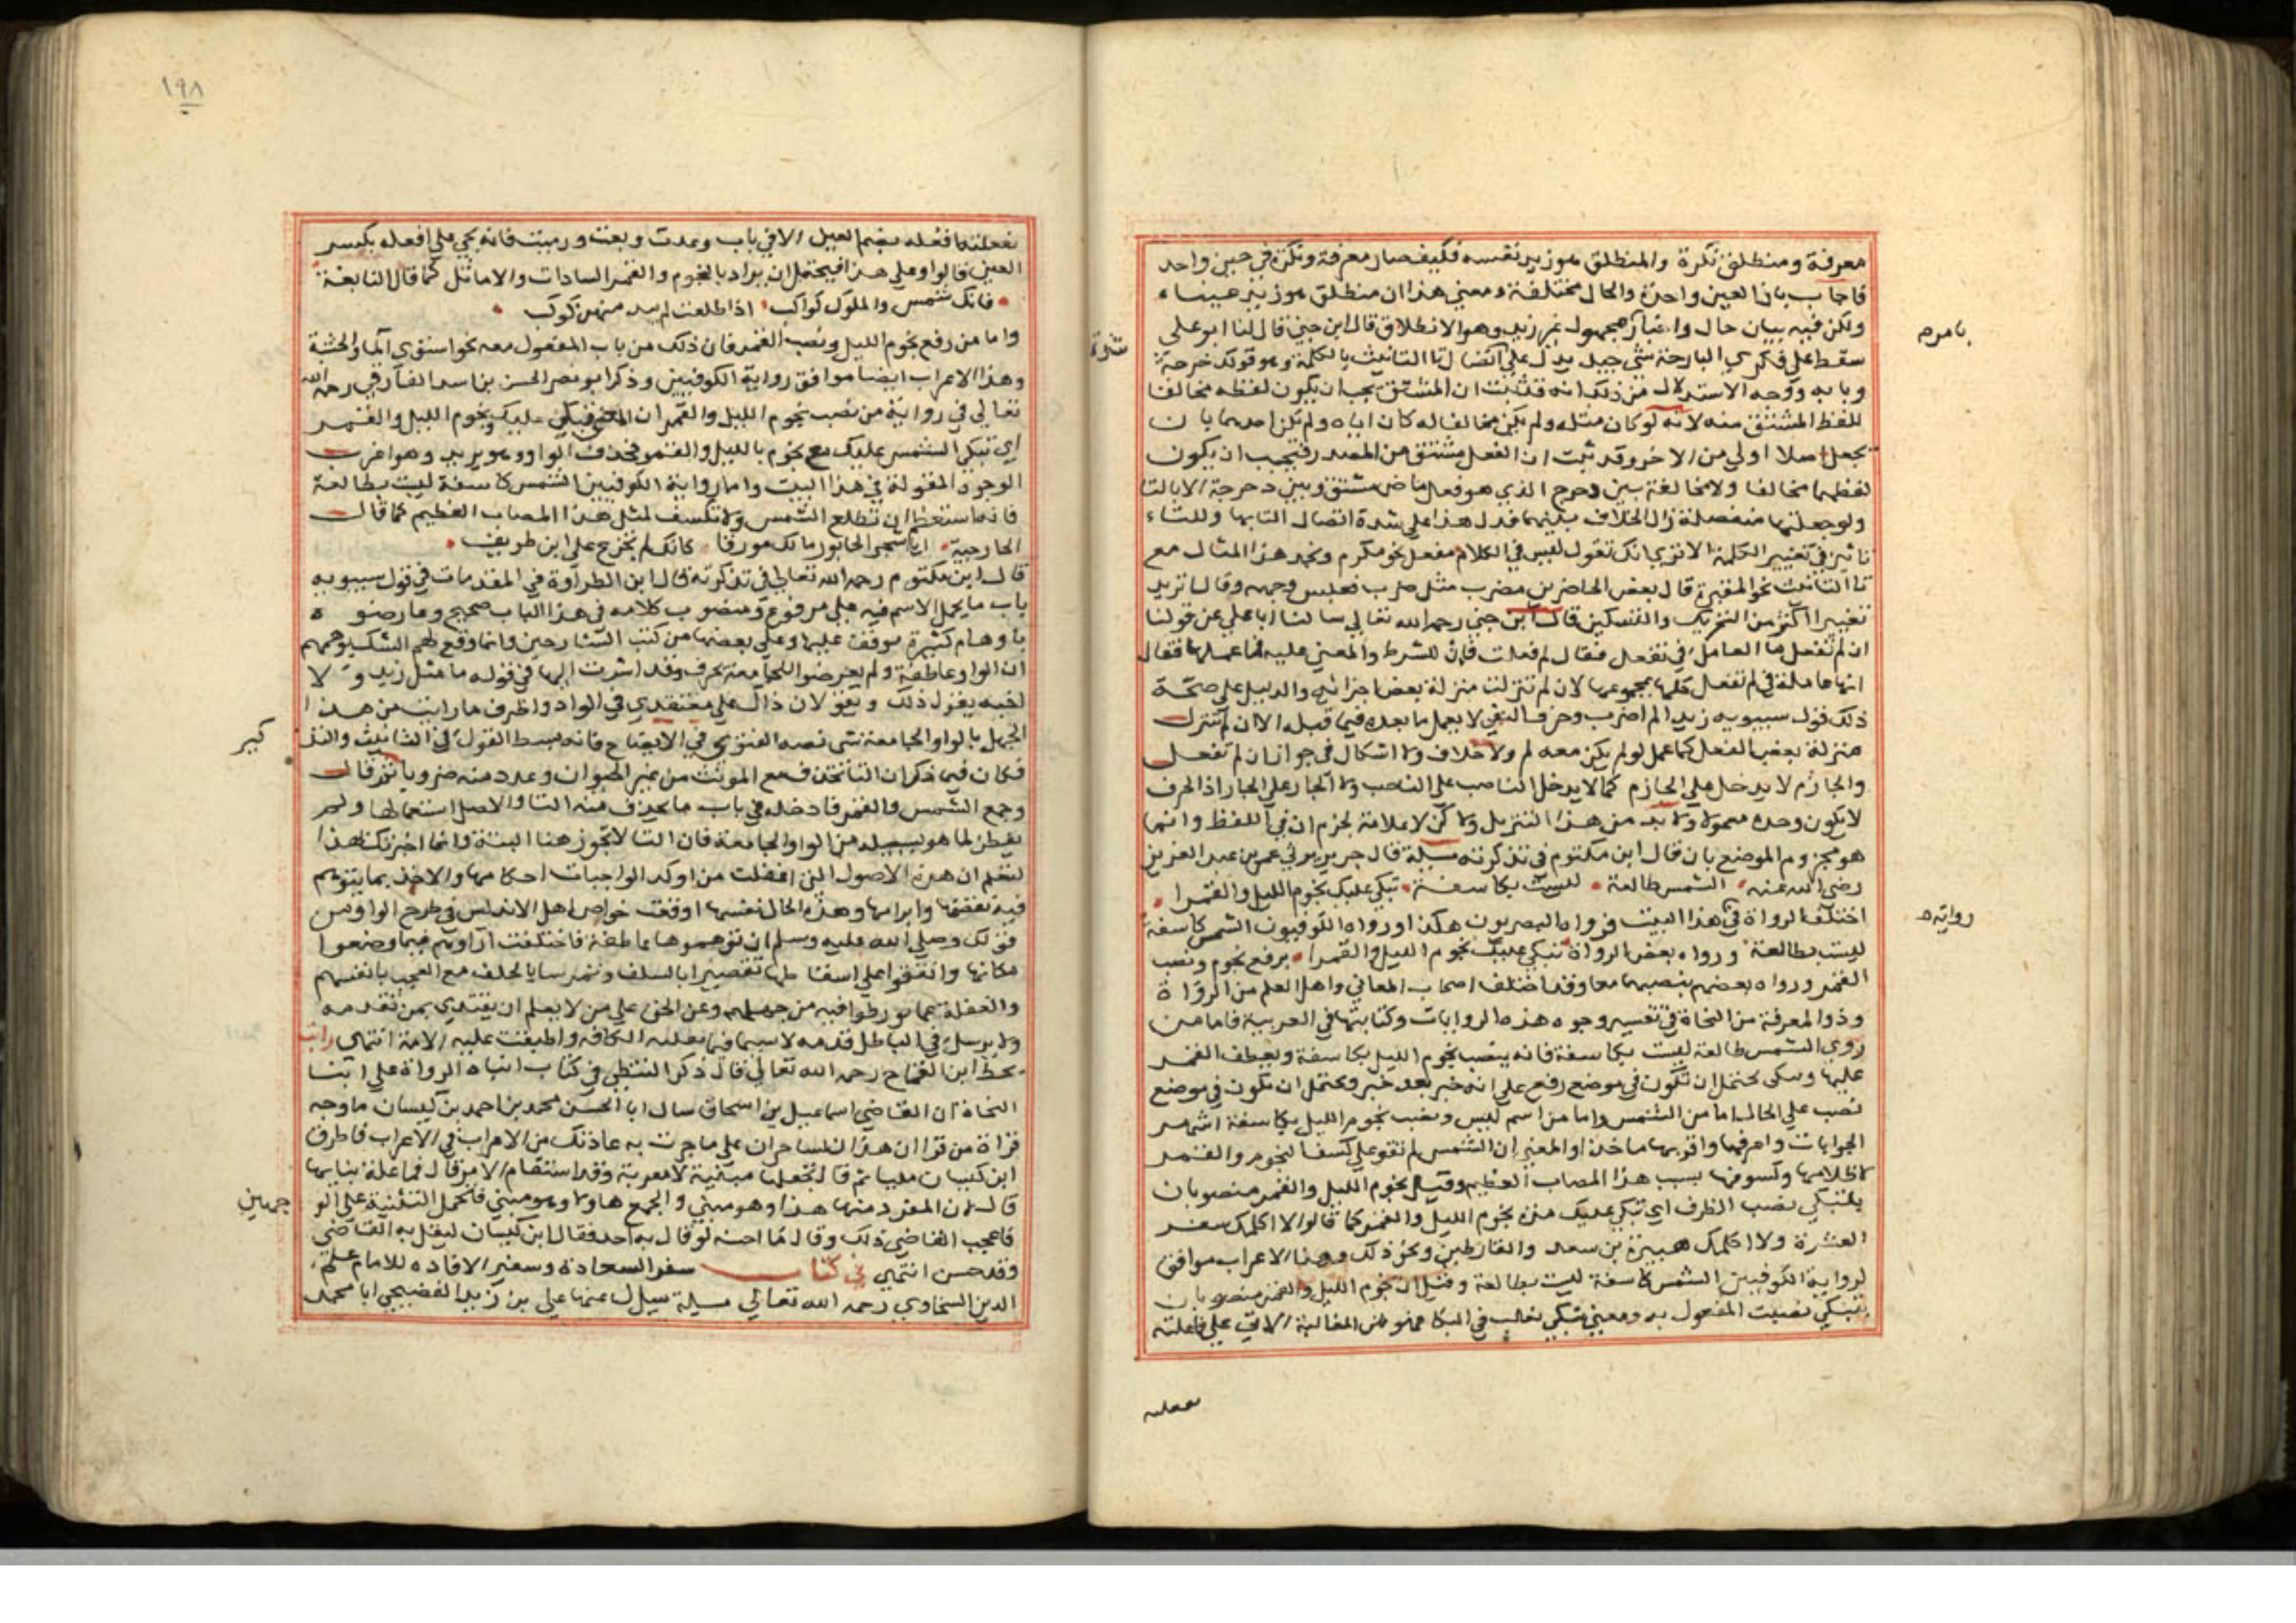 معرفة ومنطلق نكرة والمنطلق هو زيد نفسه فكيف صار معرفة ونكرة في حين واحد
فاجاب بان العين واحدة والحال مختلفة ومعنى هذا ان منطلق هو زيد عينا
ولكن فيه بيان حال واخبار مجهول عن زيد وهو الانطلاق قال ابن جني قال لنا ابو علي
سقط على فكري البارحة شي جيد يدل على اتصال تا التانيث بالكلمة وهو قولك دحرجة
وبابه ووجه الاستدلال من ذلك انه قد ثبت ان المشتق يجب ان يكون لفظه مخالفا
للفظ المشتق منه لانه لو كان مثله ولم يكن مخالفا له كان اياه ولم تكن احدهما بان
يجعل اصلا اولي من الاخر وقد ثبت ان الفعل مشتق من المصدر فيجب ان يكون
لفظهما مخالفا ولا مخالفة بين دحرج الذي هو فعل ماض مشتق وبين دحرجة الا بالتا
ولو جعلتها منفصلة زال الخلاف بينهما فدل هذا على شدة اتصال التا بها وللتاء
تاثير في تغيير الكلمة الا تري انك تقول ليس في الكلام مفعل نحو مكرم ونجد هذا المثال مع
تا التانيث نحو المقبرة قال بعض الحاضرين مضرب مثل ضرب فعبس وجهه وقال نريد
تغييرا اكثر من التحريك والتسكين قال ابن جني رحمه الله تعالي سالنا ابا علي عن قولنا
ان لم تفعل ما العامل في تفعل فقال لم فعلت فان للشرط والمعني عليه فما عملها فقال
انها عاملة في لم تفعل كلها بمجموعها لان لم تنزلت منزلة بعض اجزائه والدليل على صحة
ذلك قول سيبويه زيدا لم اضرب وحرف النفي لا يعمل ما بعده فيما قبله الا ان لم تنزل
منزلة بعض الفعل كما عمل لو لم يكن معه لم ولا خلاف ولا اشكال في جواز ان لم تفعل
والجازم لا يدخل على الجازم كما لا يدخل الناصب على الناصب ولا الجار على الجار اذ الحرف
لا يكون وحده معمولا ولا بد من هذا التنزيل ولا كن لا علامة لجزم ان في اللفظ وانما
هو مجزوم الموضع بان قال ابن مكتوم في تذكرته مسيلة قال جرير يرثي عمر بن عبد العزيز
رضي الله عنه الشمس طالعة ليست بكاسفة تبكي عليك نجوم الليل والقمرا
اختلف الرواة في هذا البيت فرواه البصريون هكذا ورواه الكوفيون الشمس كاسفة
ليست بطالعة ورواه بعض الرواة تبكي عليك نجوم الليل والقمرا برفع نجوم ونصب
القمر ورواه بعضهم بنصبهما معا وقد اختلف اصحاب المعاني واهل العلم من الرواة
وذوا المعرفة من النحاة في تفسير وجوه هذه الروايات وكتابتها في العربية فاما من
روي الشمس طالعة ليست بكاسفة فانه ينصب نجوم الليل بكاسفة ويعطف القمر
عليها وتبكي يحتمل ان تكون في موضع رفع على انه خبر بعد خبر ويحتمل ان تكون في موضع
نصب على الحال اما من الشمس واما من اسم ليس ونصب نجوم الليل بكاسفة اشهر
الجوابات واعرفها واقربها ماخذا والمعني ان الشمس لم تقو على كسف النجوم والقمر
لاظلامها وكسوفها بسبب هذا المصاب العظيم وقيل نجوم الليل والقمر منصوبان
بتبكي نصب الظرف اي تبكي عليك مدة نجوم الليل والقمر كما قالوا لا اكلمك سعد
العشرة ولا اكلمك هبيرة بن سعد والقارظين ونحو ذلك وهذا الاعراب موافق
لرواية الكوفيين الشمس كاسفة ليست بطالعة وقيل ان نجوم الليل والقمر منصوبان
بتبكي نصبت المفعول به ومعني تبكي تغالب في البكا فهو من المغالبة الاتي على فاعلته
بامرم
شدة
روايته
ففعلته
١٩٨
ففعلته افعله بضم العين الا في باب وعدت وبعت ورميت فانه يجي على افعله بكسر
العين قالوا وعلى هذا فيحتمل ان يراد بالنجوم والقمر السادات والاماثل كما قال النابغة
فانك شمس والملوك كواكب اذا طلعت لم يبد منهن كوكب
واما من رفع نجوم الليل ونصب القمر فان ذلك من باب المفعول معه نحو استوي الما والخشبة
وهذا الاعراب ايضا موافق رواية الكوفيين وذكر ابو نصر الحسن بن اسد الفارقي رحمه الله
تعالي في رواية من نصب نجوم الليل والقمر ان المعني تبكي عليك ونجوم الليل والقمر
اي تبكي الشمس عليك مع نجوم الليل والقمر فحذف الواو وهو يريد وهو اغرب
الوجوه المقولة في هذا البيت واما رواية الكوفيين الشمس كاسفة ليست بطالعة
فانما استعظم ان تطلع الشمس ولا تكسف لمثل هذا المصاب العظيم كما قالت
الخارجية ايا شجر الخابور مالك مورقا كانك لم تجزع على ابن طريف
قال ابن مكتوم رحمه الله تعالي في تذكرته قال ابن الطراوة في المقدمات في قول سيبويه
باب ما يحمل الاسم فيه على مرفوع ومنصوب كلامه في هذا الباب صحيح وعارضوه
باوهام كثيرة موقفت عليها وعلى بعضها من كتب الشارحين وانما وقع لهم الشك بوهمهم
ان الواو عاطفة ولم يعرضوا للجامعة بحرف وقد اشرت اليها في قوله ما مثل زيد ولا
اخيه يقول ذلك ويقولان ذاك على معتقدي في الواو واظرف ما رايت من هذا
الجهل بالواو الجامعة شي نصه الفنوي في الايضاح فانه بسط القول في التانيث والتذ
كير
فكان فيما ذكر ان التا تحذف مع المونث من غير الحيوان وعدد منه ضروبا ثم قال
وجمع الشمس والقمر فادخله في باب ما يحذف منه التا والاصل استعمالها ولم
يفطن لما هو بسبيله من الواو الجامعة فان التا لا تجوز هنا البتة وانما اخبرتك هذا
لتعلم ان هذه الاصول التي اغفلت من اوكد الواجبات احكامها والاخذ بما يتوهم
فيه نقضها وابرامها وهذه الحال نفسها اوقعت خواص اهل الاندلس في طرح الواو من
قولك وصلي الله عليه وسلم ان توهموها عاطفة فاختلفت اراوهم فيما وضعوا
مكانها واتفقوا على اسقاطها تقصيرا بالسلف وتمرسا بالخلف مع العجب بانفسهم
والغفلة عما تورطوا فيه من جهلهم وعن الحق على من لا يعلم ان يقتدي بمن تقدمه
ولا يرسل في الباطل قدمه لا سيما فيما نقلته الكافة واطبقت عليه الامة انتهى رايت
بخط ابن القماح رحمه الله تعالي قال ذكر القفطي في كتاب انباه الرواة على انبا
النحاة ان القاضي اسماعيل بن اسحاق سال ابا الحسن محمد بن احمد بن كيسان ما وجه
قراة من قرا ان هذان لساحران على ما جرت به عادتك من الاعراب في الاعراب فاطرق
ابن كيسان مليا ثم قال نجعلها مبنية لا معربة وقد استقام الامر قال فما علة بنايها
قال لان المفرد منها هذا وهو مبني والجمع هاولا وهو مبني فتحمل التثنية على الو
جهين
فاعجب القاضي ذلك وقال ما احسنه لو قال به احد فقال ابن كيسان ليقل به القاضي
وقد حسن انتهى في كتاب سفر السعادة وسفير الافادة للامام علم
الدين السخاوي رحمه الله تعالي مسيلة سيل عنها علي بن زيد الفصيحي ابا محمد